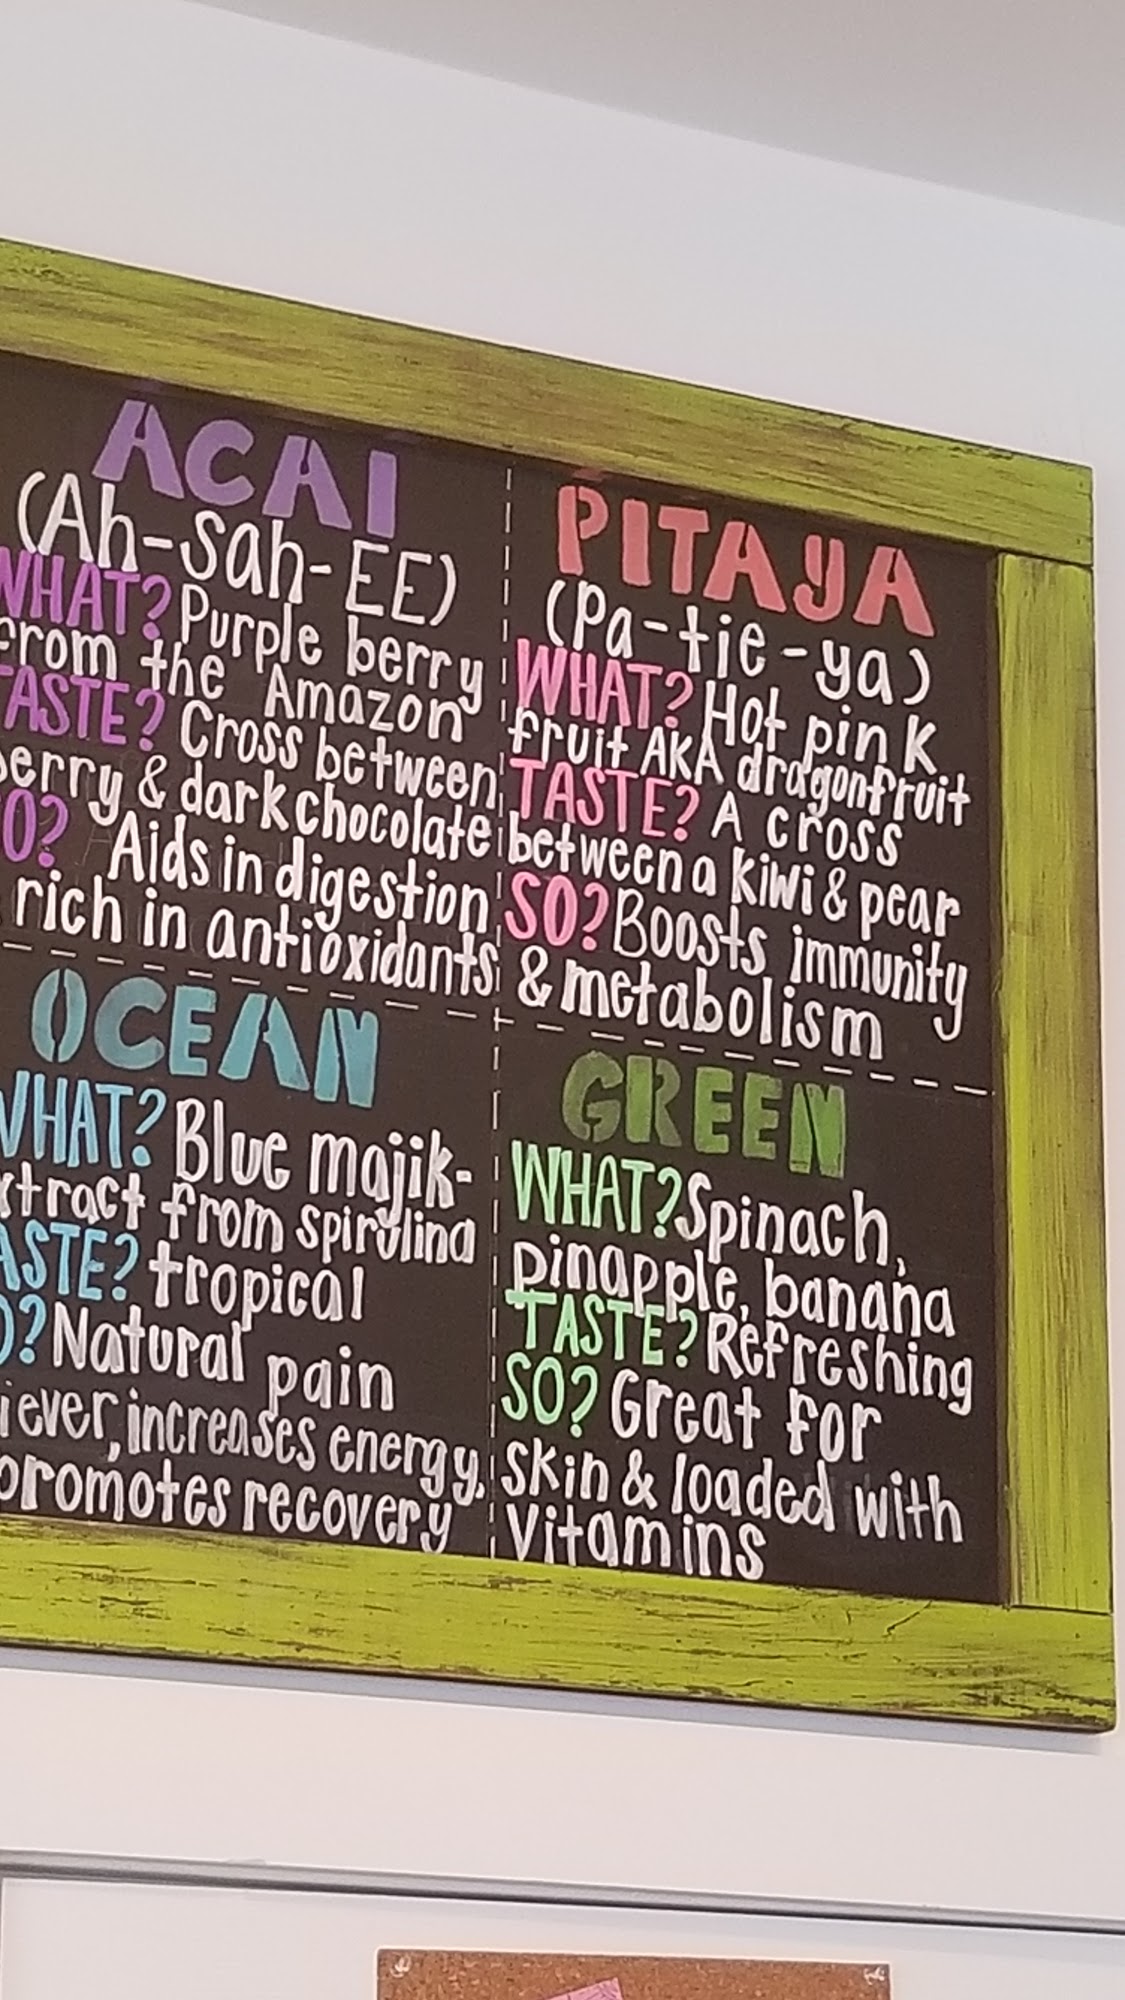 ACAI
(Ah-sah-EE)
WHAT? Purple berry
from the Amazon
TASTE? Cross between
berry & dark chocolate
SO? Aids in digestion
rich in antioxidants
PITAYA
(Pa-tie-ya)
WHAT? Hot pink
fruit AKA dragonfruit
TASTE? A cross
between a kiwi & pear
SO? Boosts immunity
& metabolism
OCEAN
WHAT? Blue majik-
xtract from spirulina
ASTE? tropical
O? Natural pain
iever, increases energy,
promotes recovery
GREEN
WHAT? Spinach,
pinapple, banana
TASTE? Refreshing
SO? Great for
skin & loaded with
Vitamins